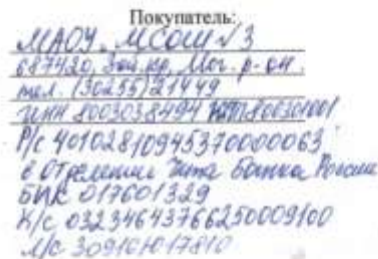 Покупатель:
МАОУ "МСОШ №3
687420, Заб. кр, Мог. р-он.
тел. (30255) 21449
ИНН 8003038494 КПП 800301001
Р/с 40102810945370000063
в Отделении Чита Банка России
БИК 017601329
К/с 03234643766250009100
Л/с 30910Ю17810